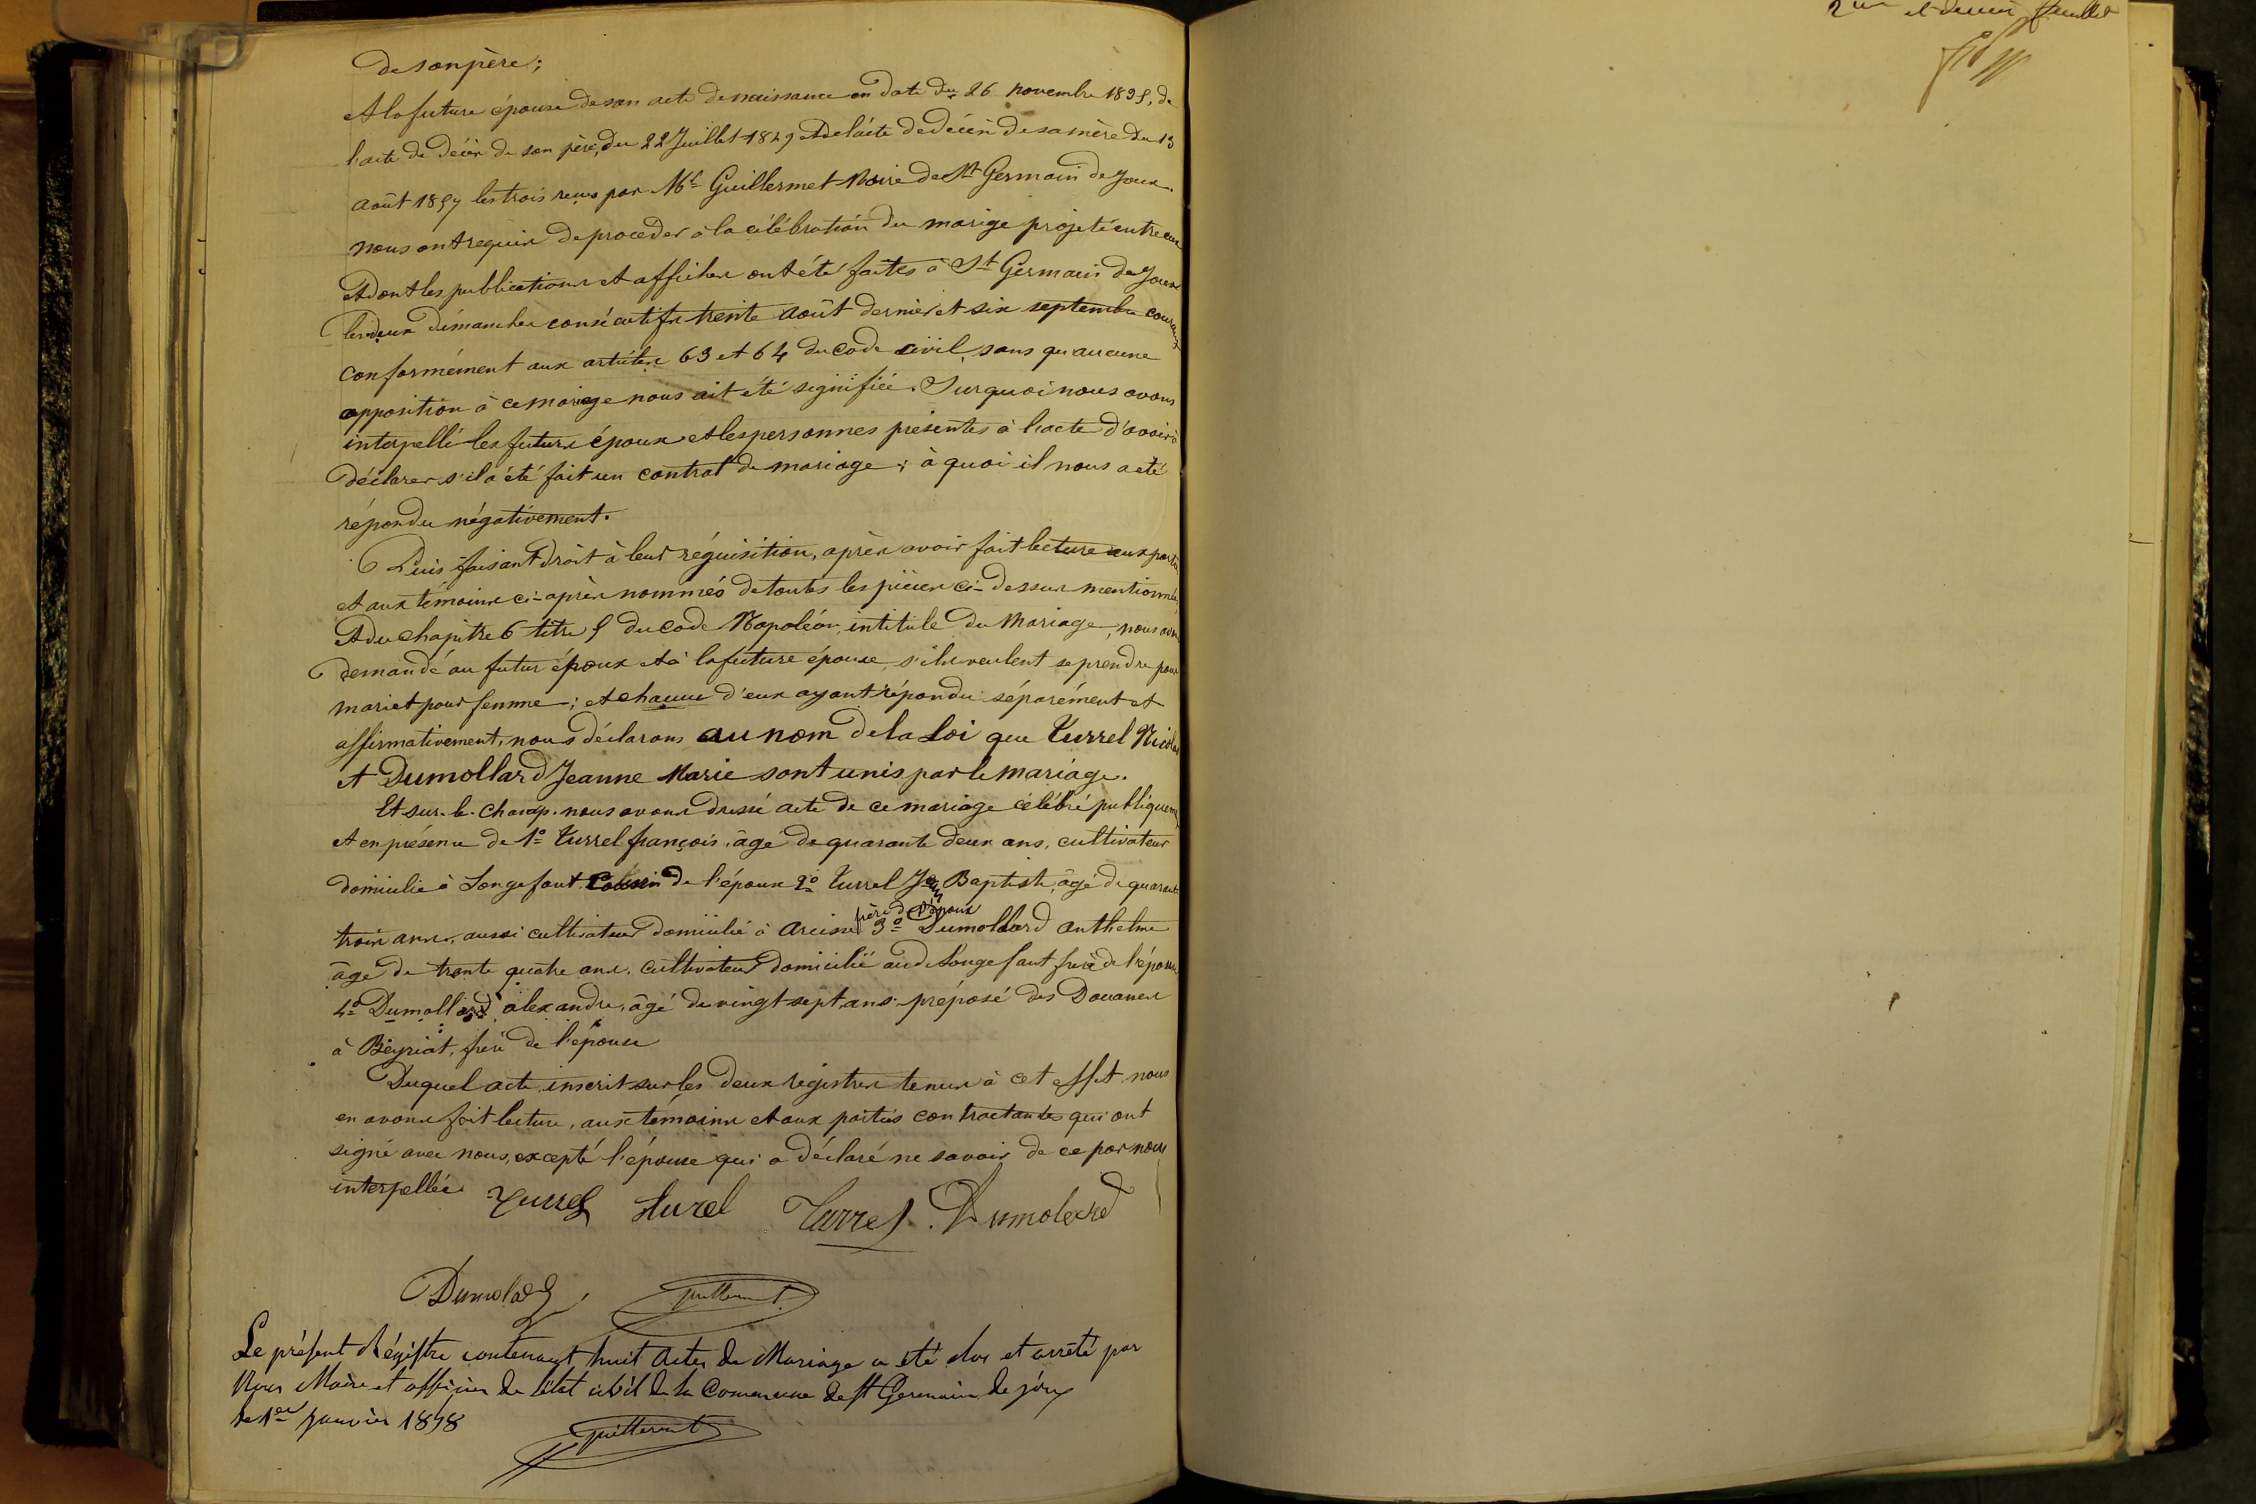 de son père;
et la future épouse de son acte de naissance en date du 26 novembre 1835, de
l'acte de décès de son père, du 22 Juillet 1849 et de l'acte de décès de sa mère du 13
août 1857 les trois reçus par Mr Guillermet Maire de St Germain de Joux.
nous ont requis de procéder à la célébration du marige projeté entre eux
et dont les publications et affiches ont été faites à St Germain de Joux
les deux dimanches consécutifs trente août dernier et six septembre courant
conformément aux articles 63 et 64 du code civil, sans qu'aucune
opposition à ce mariage nous ait été signifiée. Sur quoi nous avons
interpellé les futurs époux et les personnes présentes à l'acte d'avoir à
déclarer s'il a été fait un contrat de mariage; à quoi il nous a été
répondu négativement.
Puis faisant droit à leur réquisition, après avoir fait lecture aux parties
et aux témoins ci-après nommés de toutes les pièces ci-dessus mentionnées,
et du chapitre 6 titre 5 du code Napoléon, intitulé du Mariage, nous avons
demandé au futur époux et à la future épouse s'ils veulent se prendre pour
mari et pour femme; et chacun d'eux ayant répondu séparément et
affirmativement, nous déclarons au nom de la Loi que Turrel Nicolas
et Dumollard Jeanne Marie sont unis par le mariage.
Et sur-le-champ. nous avons dressé acte de ce mariage célébré publiquement
et en présence de 1º Turrel françois, âgé de quarante deux ans, cultivateur
domicilié à Longefont Cousin de l'époux 2º Turrel Jean Baptiste, âgé de quarante
frère de l'époux
trois ans, aussi cultivateur domicilié à 3º Dumollard anthelme
âgé de trente quatre ans. cultivateur domicilié aud. Longefant frère de l'épouse
4º Dumollard alexandre, âgé de vingt sept ans préposé des Douanes
à Béyriat, frère de l'épouse
Duquel acte, inscrit sur les deux registres tenus à cet effet, nous
en avons fait lecture, aux témoins et aux parties contractantes qui ont
signé avec nous, excepté l'épouse qui a déclaré ne savoir de ce par nous
interpellée. Turrel Turel Turrel Dumolard
Dumolard Guillermet
Le présent Régistre contenant huit Actes de Mariage a été clos et arrêté par
Nous Maire et officier de l'état civil de la Commune de St Germain de joux
le 1er Janvier 1858
Guillermet
2me et dernier feuillet